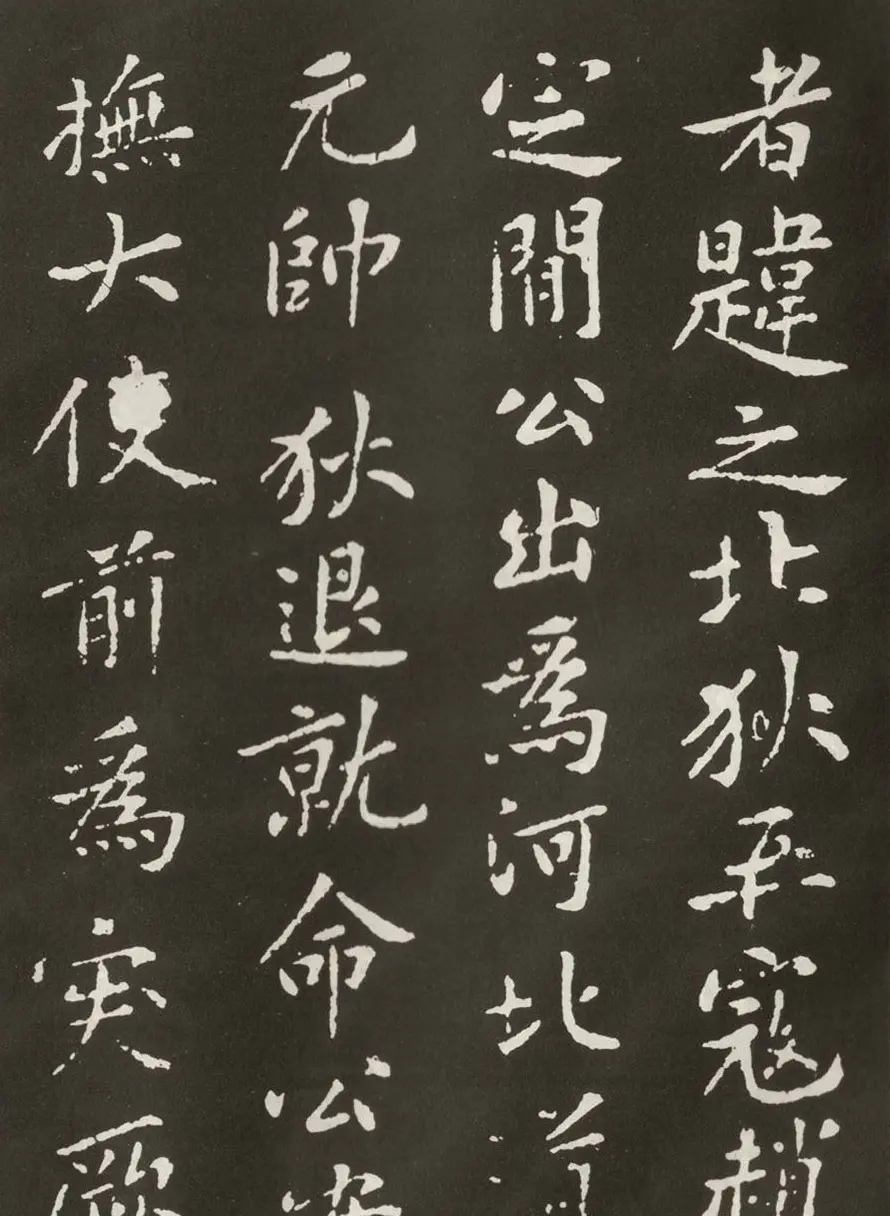 者韙之北狄再寇趙
定間公出爲河北道
元帥狄退就命公安
撫大使前爲突厥